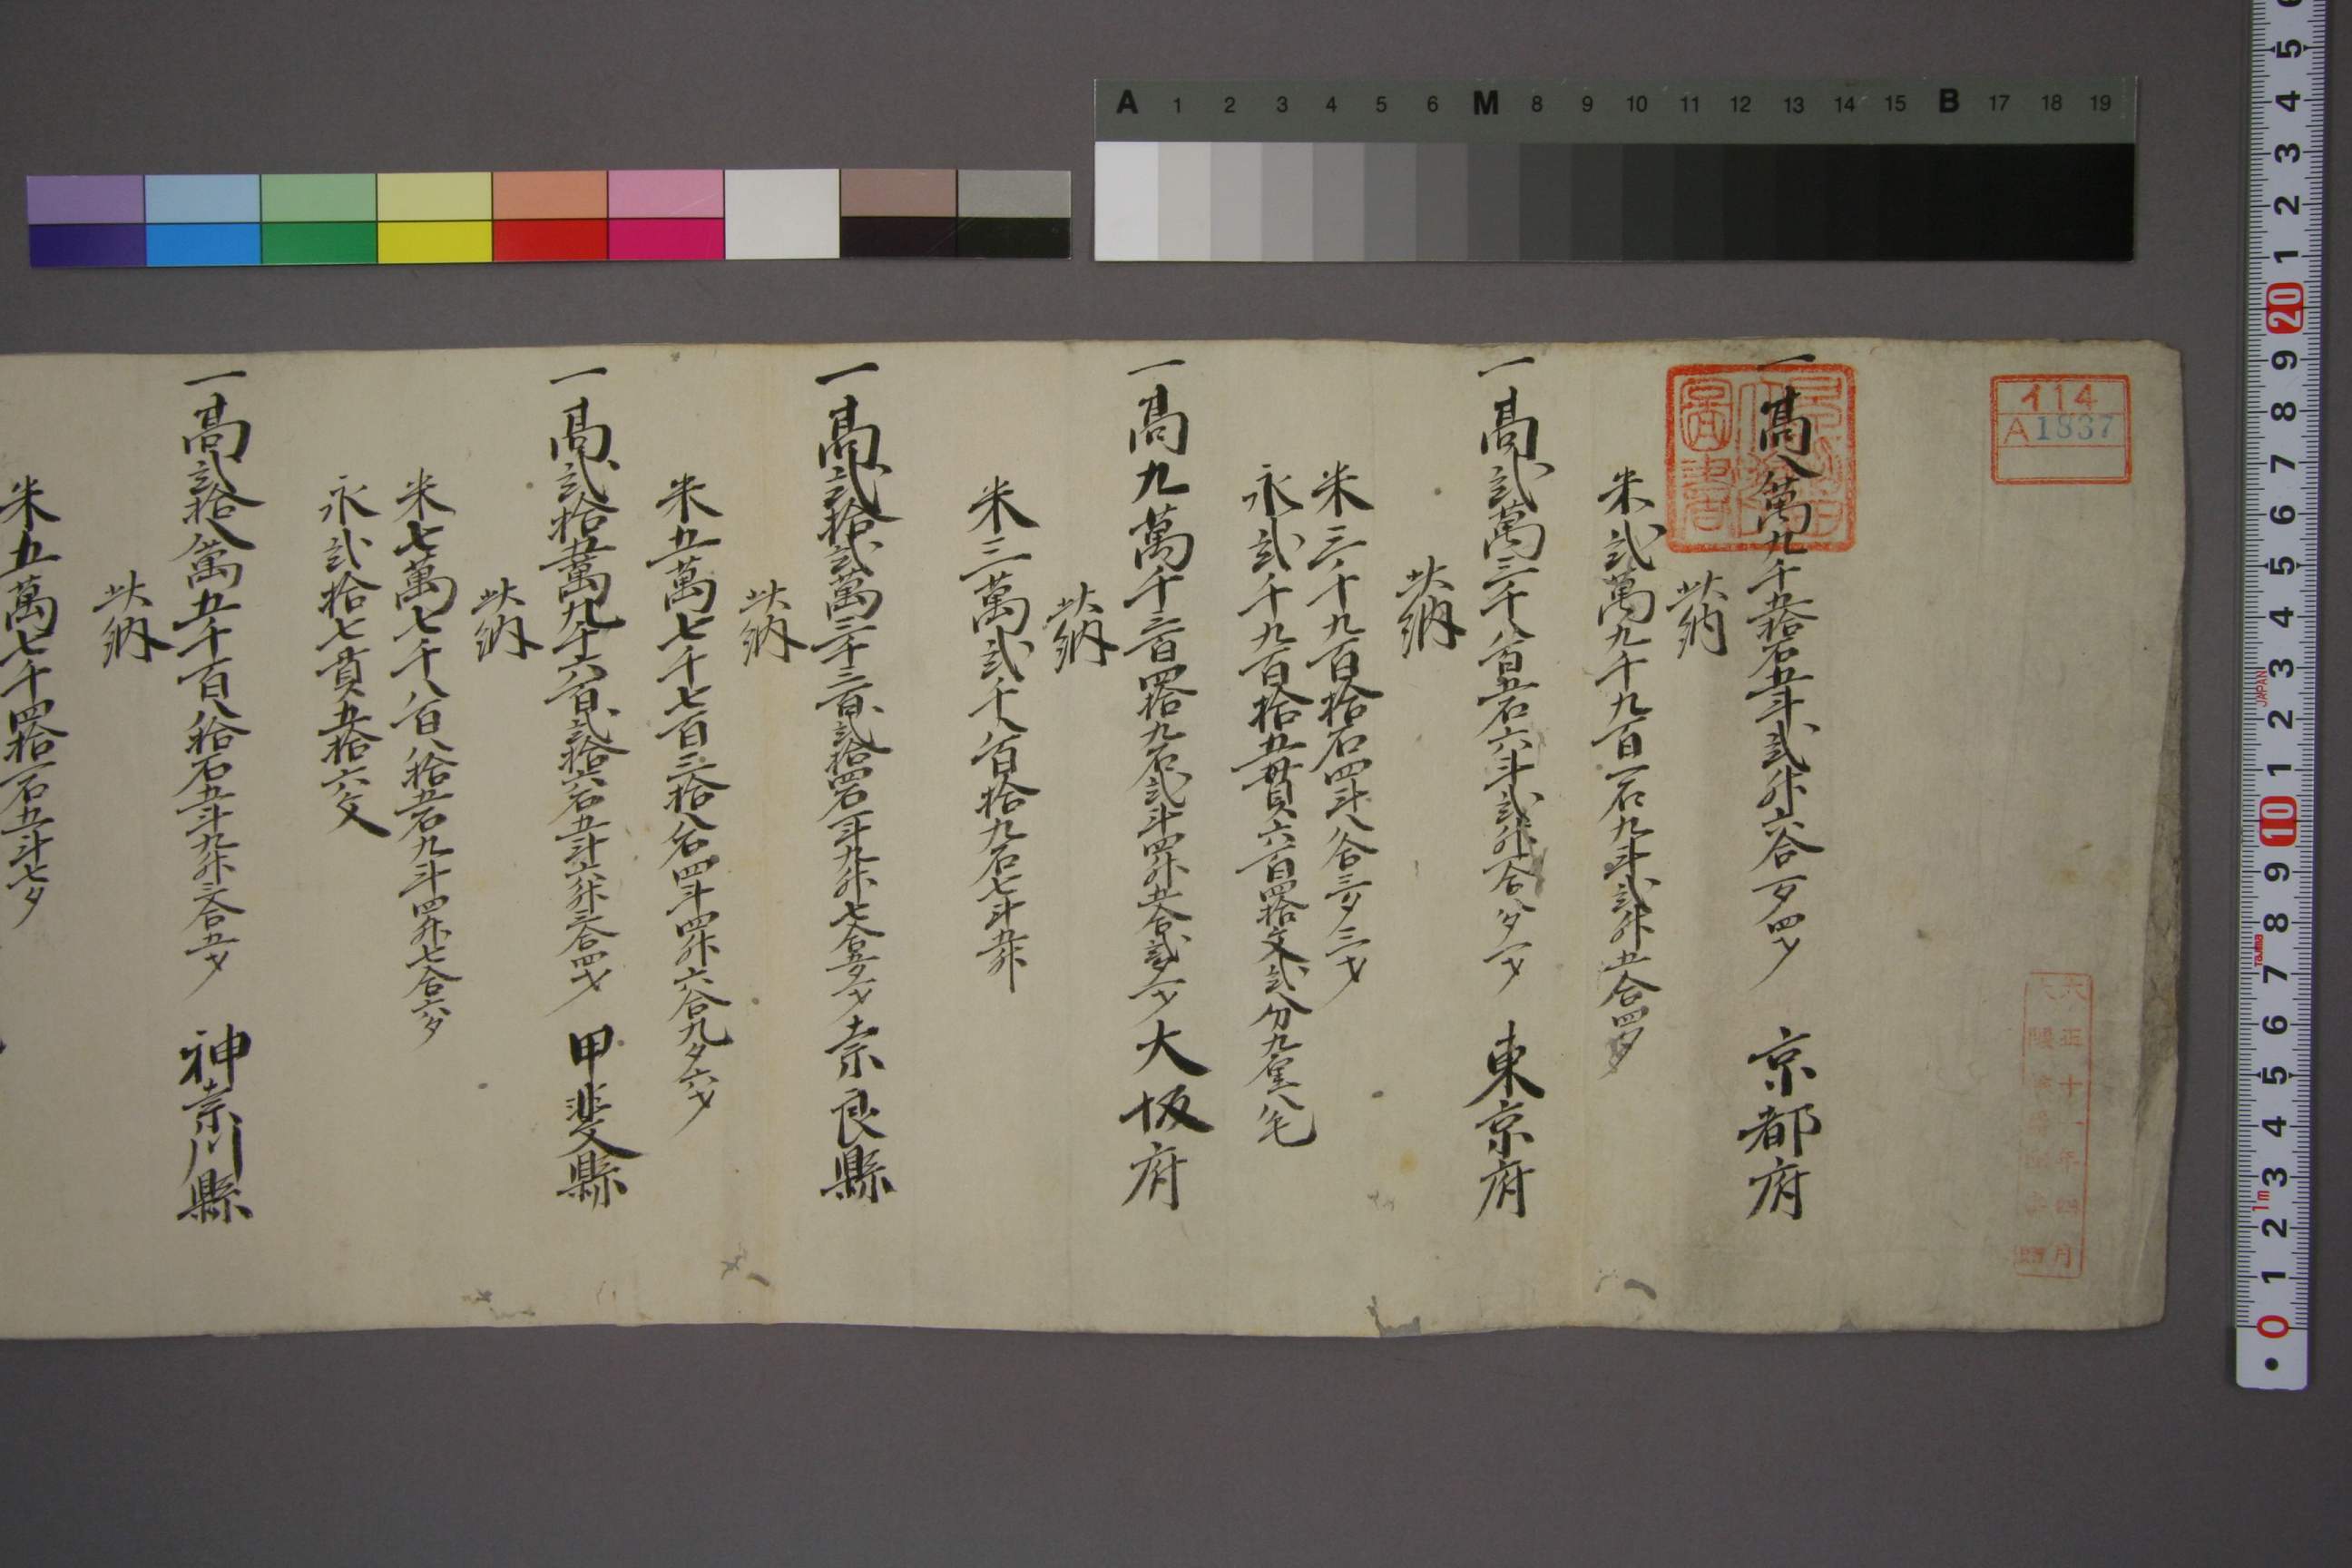 イ14
A1837
一高八萬九千五拾石五斗弐升六合一夕四才 京都府
此納
米弐萬九千九百一石九斗弐升五合四夕
一高弐萬三千八百五石六斗弐升一合八夕一才 東京府
此納
米三千九百拾石四斗八合三夕三才
永弐千九百拾五貫六百四拾文弐分九厘八毛
一高九萬千三百四拾九石弐斗四升五合弐夕一才 大坂府
此納
米三萬弐千八百拾九石七斗五升
一高弐拾弐萬三千三百弐拾四石一斗九升七合五夕一才 奈良縣
此納
米五萬七千七百三拾八石四斗四升六合九夕六才
一高弐拾五萬九千六百弐拾六石五斗六升三合四才 甲斐縣
此納
米七萬七千八百八拾五石九斗四升七合六夕
永弐拾七貫五拾六文
一高弐拾八萬五千百八拾石五斗九升三合五才 神奈川縣
此納
米五萬七千四拾一石五斗七夕
A 1 2 3 4 5 6 M 8 9 10 11 12 13 14 15 B 17 18 19